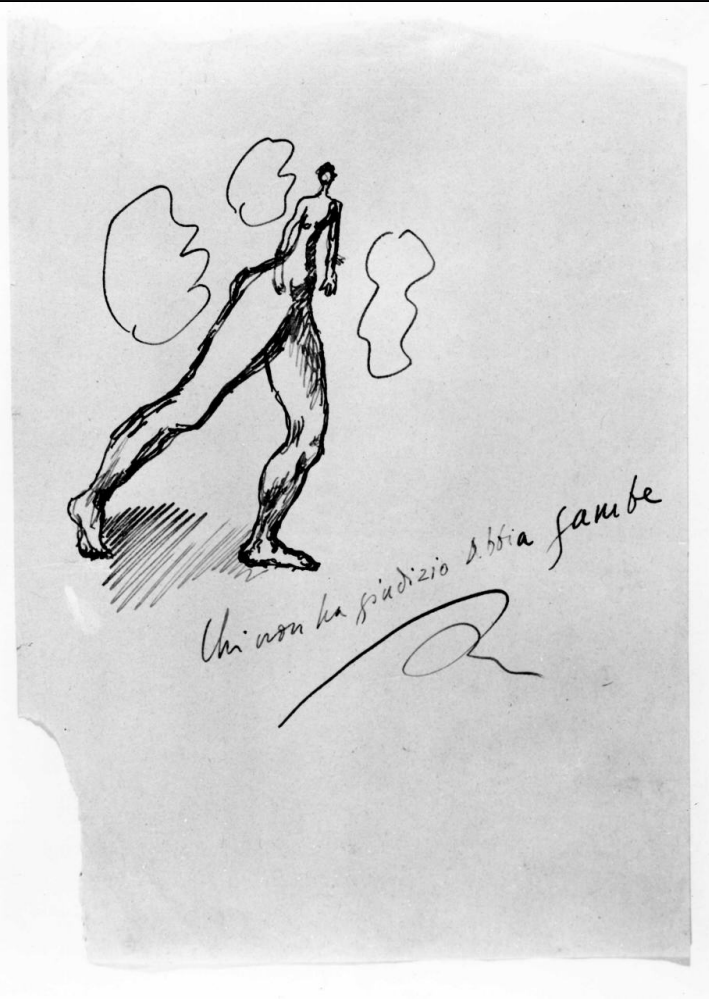 Chi non ha giudizio abbia gambe